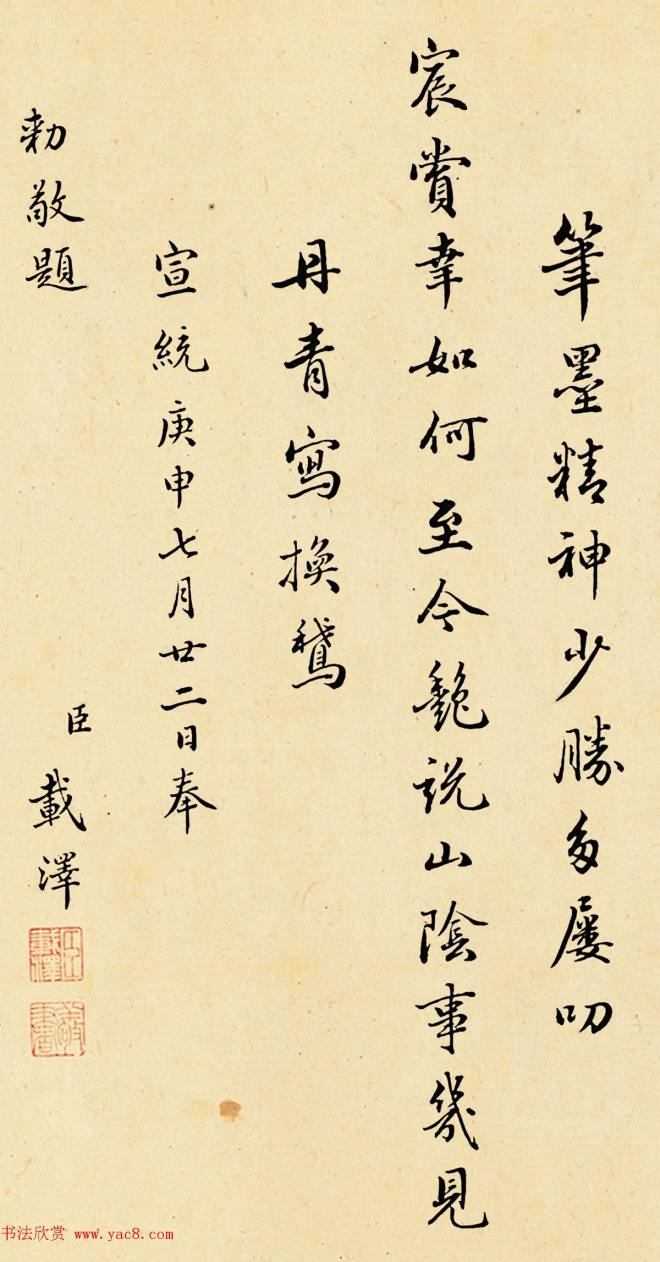 筆墨精神少勝多屢叨
宸賞幸如何至今艷說山陰事幾見
丹青寫換鵞
宣統庚申七月廿二日奉
勅敬題
臣載澤
臣載澤
敬書
书法欣赏 www.yac8.com